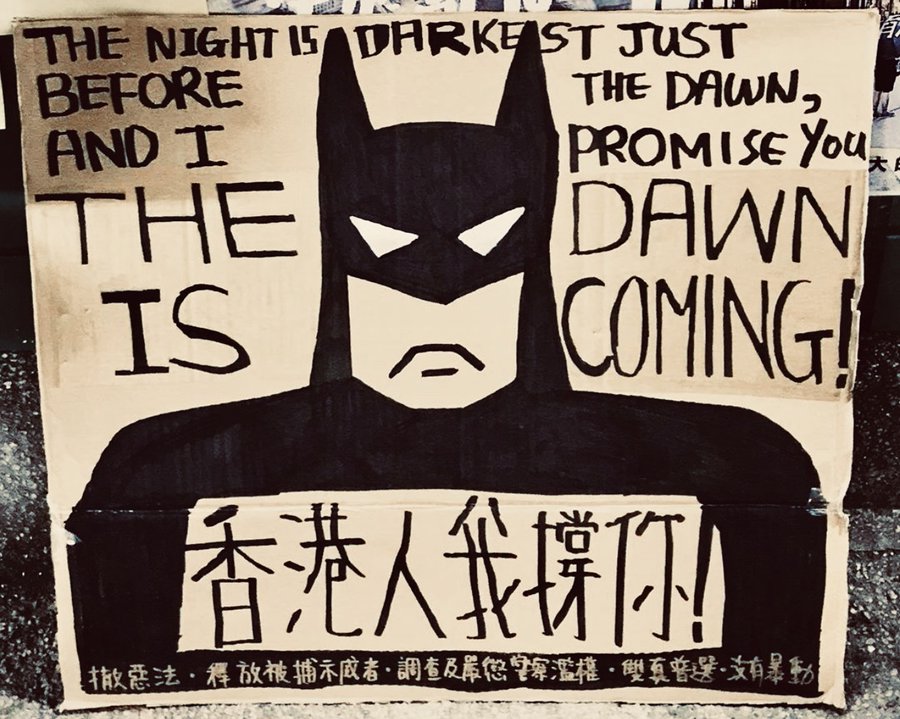 THE NIGHT IS DARKEST JUST
BEFORE THE DAWN,
AND I PROMISE YOU
THE DAWN
IS COMING!
香港人我撐你!
撤惡法・釋放被捕示威者・調查及嚴懲警察濫權・雙真普選・沒有暴動